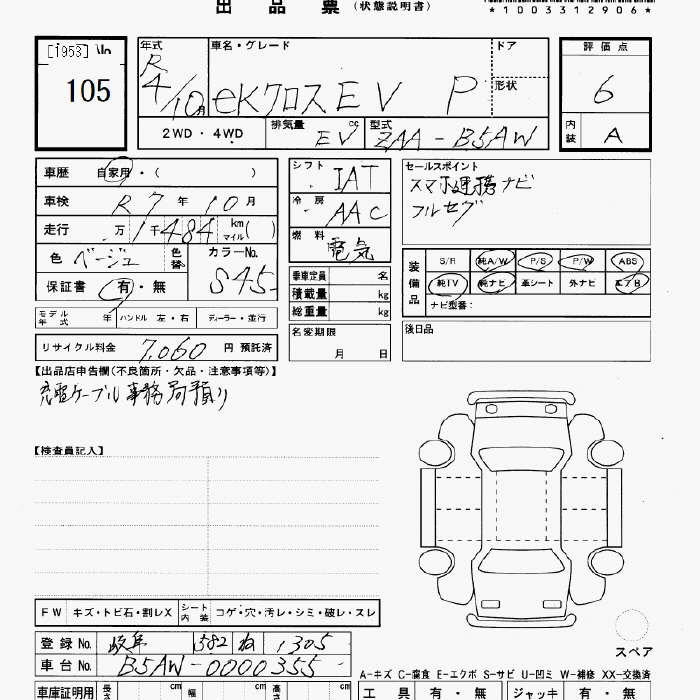 出 品 票 (状態説明書)
*1003312906*
[1953]
105
年式 車名・グレード ドア 評価点
R4/10月 eKクロスEV P 形状 6
2WD・4WD 排気量 EV cc 型式 ZAA-B5AW 内装 A
車歴 自家用・( )
車検 R7年10月
走行 万1千484 km マイル( )
色 ベージュ 色替 カラーNo. S45
保証書 有・無
モデル年式 年 ハンドル 左・右 ディーラー・並行
リサイクル料金 7,060 円 預託済
シフト IAT
冷房 AAC
燃料 電気
乗車定員 名
積載量 kg
総重量 kg
名変期限
月 日
セールスポイント
スマホ連携ナビ
フルセグ
装備品 S/R 純A/W P/S P/W ABS
純TV 純ナビ 革シート 外ナビ エアB
ナビ型番:
後日品
【出品店申告欄(不良箇所・欠品・注意事項等)】
充電ケーブル事務局預り
【検査員記入】
FW キズ・トビ石・割レX シート内装 コゲ・穴・汚レ・シミ・破レ・スレ
登録No. 岐阜 582 ね 1305
車台No. B5AW-0000355
スペア
A-キズ C-腐食 E-エクボ S-サビ U-凹ミ W-補修 XX-交換済
車庫証明用 長さ cm 幅 cm 高さ cm
工具 有・無 ジャッキ 有・無